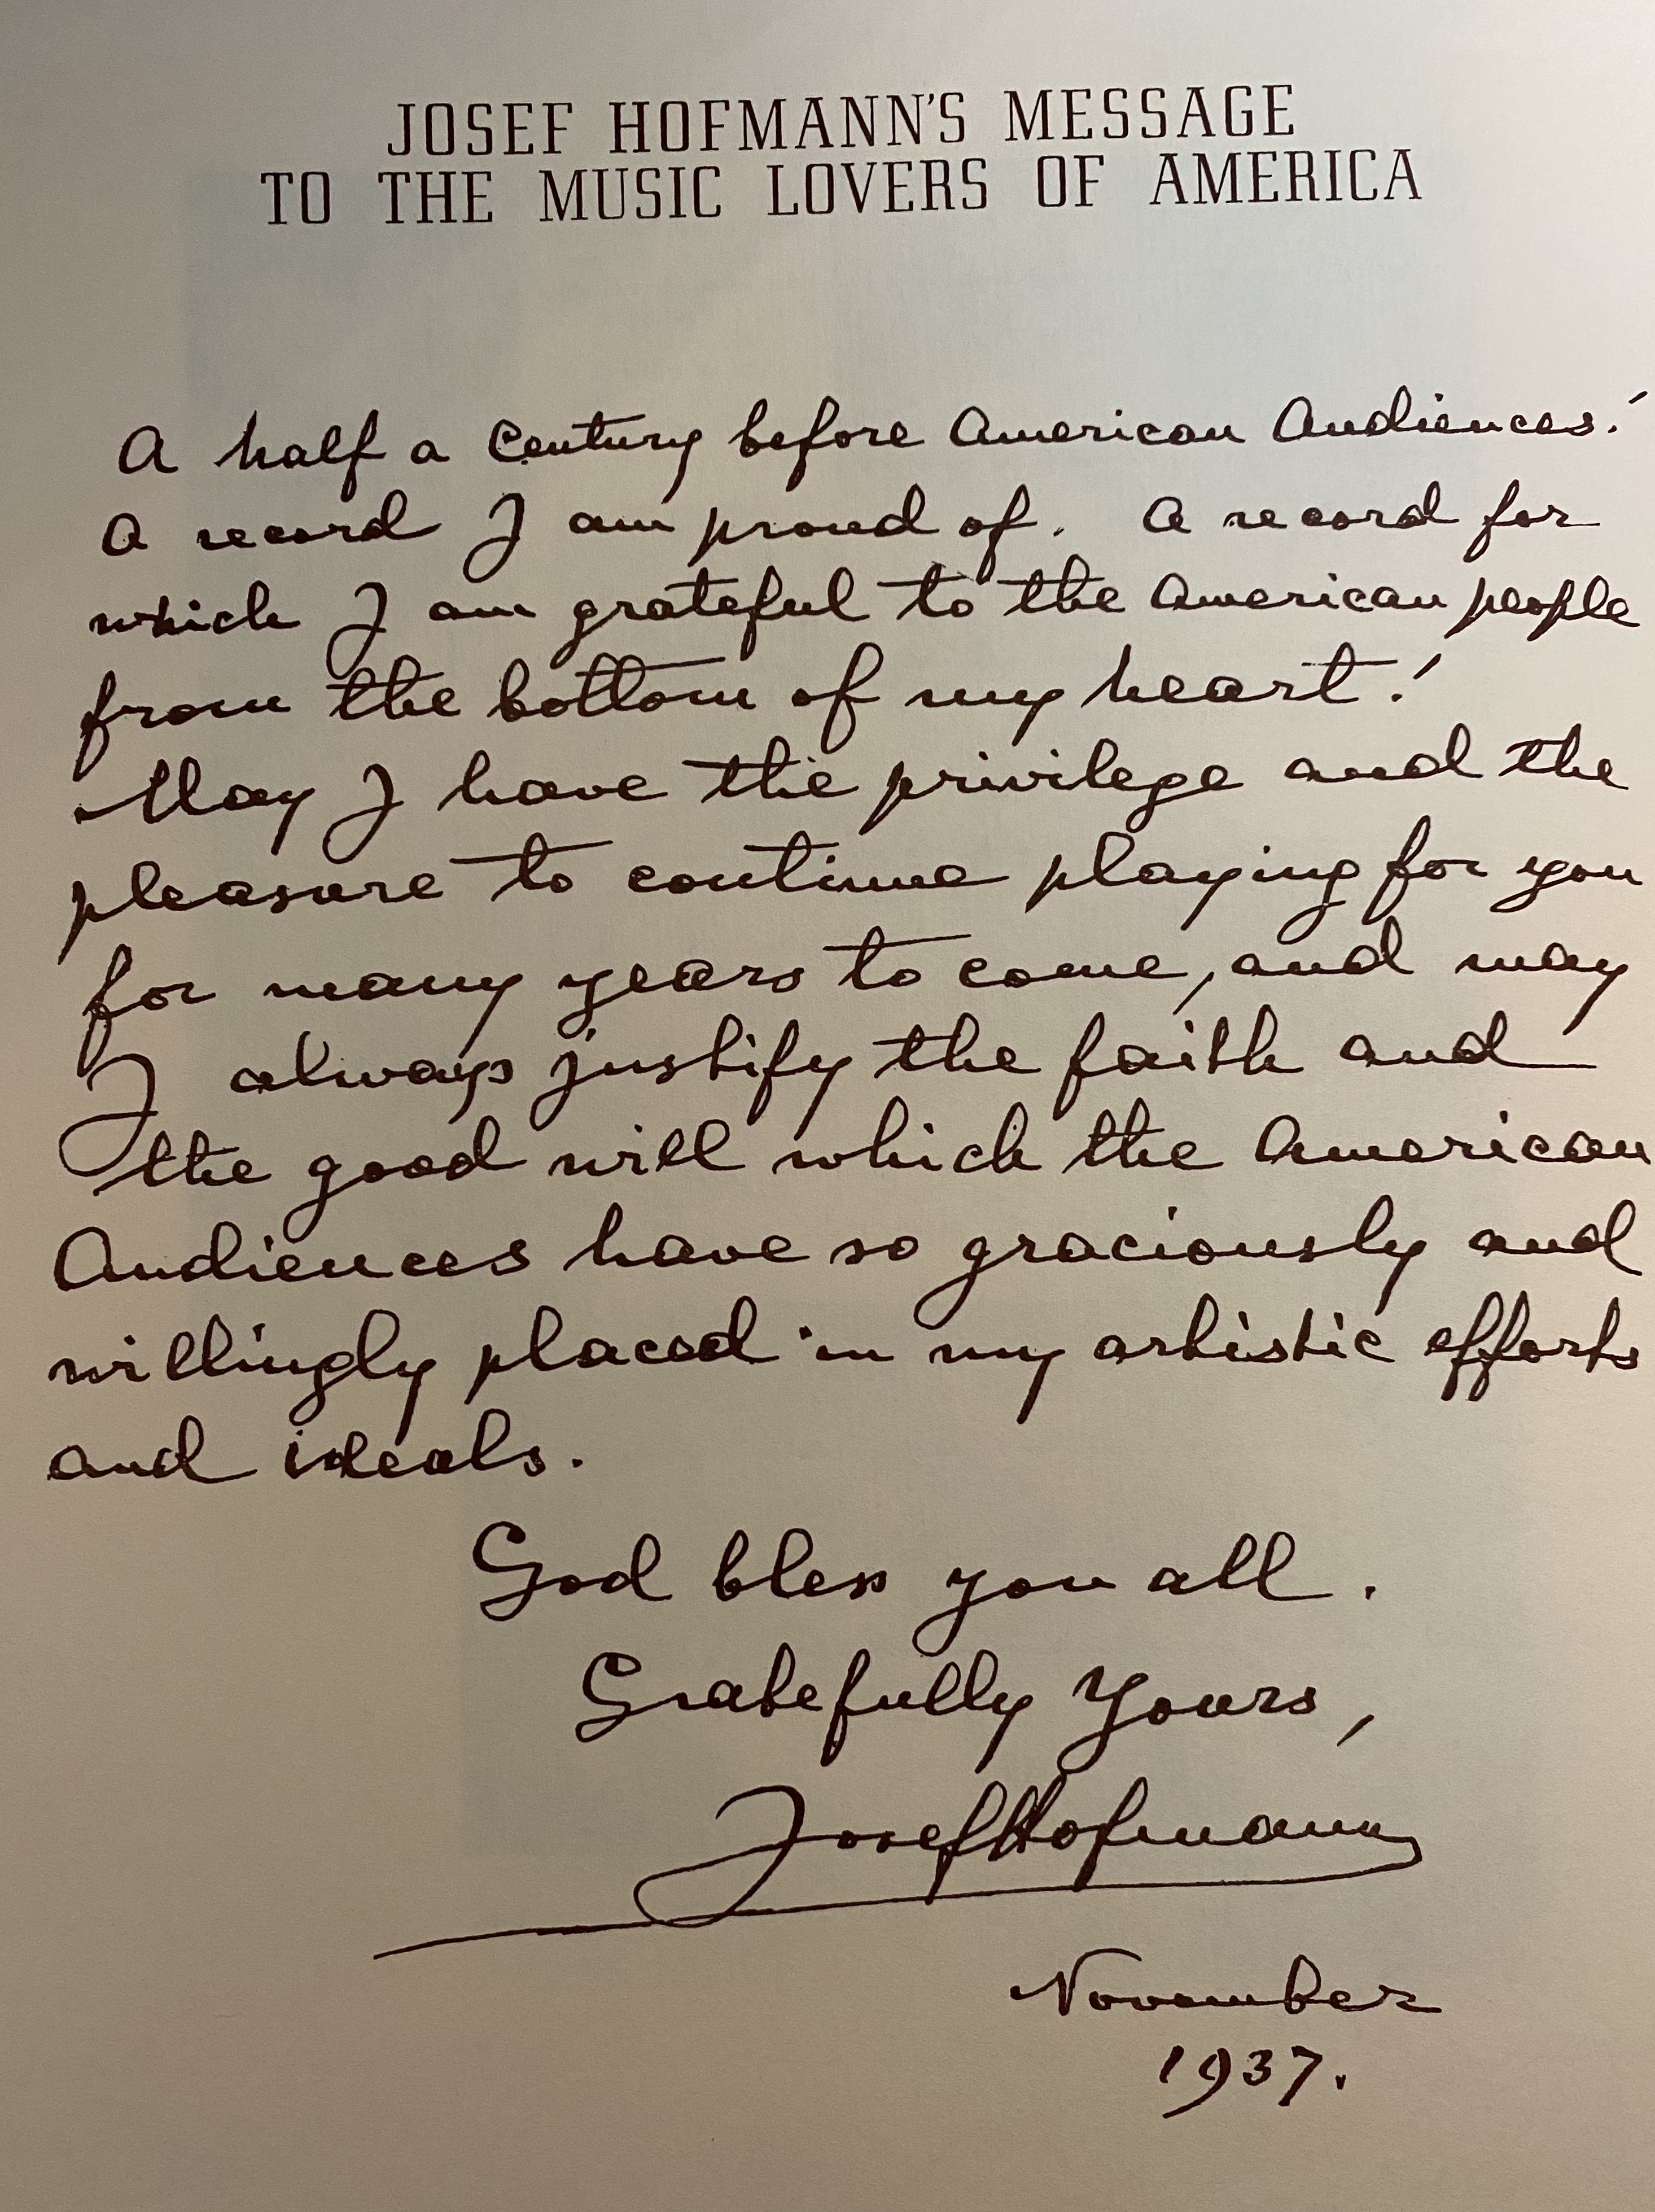 JOSEF HOFMANN'S MESSAGE
TO THE MUSIC LOVERS OF AMERICA
A half a Century before American Audiences!
A record I am proud of. A record for
which I am grateful to the American people
from the bottom of my heart!
May I have the privilege and the
pleasure to continue playing for you
for many years to come, and may
I always justify the faith and
the good will which the American
Audiences have so graciously and
willingly placed in my artistic efforts
and ideals.
God bless you all.
Gratefully Yours,
Josef Hofmann
November
1937.